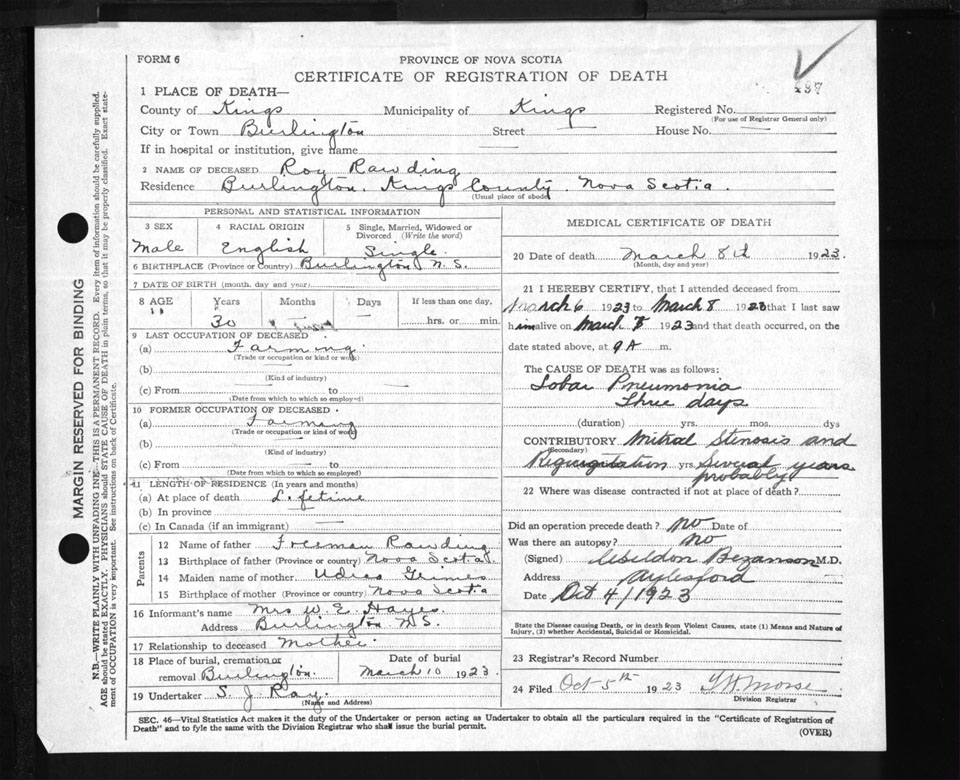 FORM 6
PROVINCE OF NOVA SCOTIA
CERTIFICATE OF REGISTRATION OF DEATH
1 PLACE OF DEATH—
County of Kings Municipality of Kings Registered No.
(For use of Registrar General only)
City or Town Burlington Street — House No. —
If in hospital or institution, give name —
2 NAME OF DECEASED Roy Rawding
Residence Burlington, Kings County, Nova Scotia.
(Usual place of abode)
PERSONAL AND STATISTICAL INFORMATION
3 SEX 4 RACIAL ORIGIN 5 Single, Married, Widowed or
Divorced (Write the word)
Male English Single
6 BIRTHPLACE (Province or Country) Burlington N. S.
7 DATE OF BIRTH (month, day and year)
8 AGE Years Months Days If less than one day,
30 hrs. or min.
9 LAST OCCUPATION OF DECEASED
(a) Farming.
(Trade or occupation or kind of work)
(b)
(Kind of industry)
(c) From to
(Date from which to which so employed)
10 FORMER OCCUPATION OF DECEASED
(a) Farming
(Trade or occupation or kind of work)
(b)
(Kind of industry)
(c) From to
(Date from which to which so employed)
11 LENGTH OF RESIDENCE (In years and months)
(a) At place of death Lifetime
(b) In province
(c) In Canada (if an immigrant)
Parents
12 Name of father Freeman Rawding
13 Birthplace of father (Province or country) Nova Scotia.
14 Maiden name of mother Grimes
15 Birthplace of mother (Province or country) Nova Scotia
16 Informant's name Mrs W. E. Hayes.
Address Burlington N S.
17 Relationship to deceased Mother.
18 Place of burial, cremation or Date of burial
removal Burlington. March 10 1923
19 Undertaker S. J. Ray.
(Name and Address)
MEDICAL CERTIFICATE OF DEATH
20 Date of death March 8th 1923.
(Month, day and year)
21 I HEREBY CERTIFY, that I attended deceased from
March 6 1923 to March 8 1923 that I last saw
him alive on March 1923 and that death occurred, on the
date stated above, at 9 A m.
The CAUSE OF DEATH was as follows:
Lobar Pneumonia
Three days
(duration) yrs. mos. dys
CONTRIBUTORY Mitral Stenosis and
(Secondary)
Regurgitation yrs. Several years
probably
22 Where was disease contracted if not at place of death?
Did an operation precede death? no Date of
Was there an autopsy? no
(Signed) Bezanson M.D.
Address Aylesford
Date Oct 4/1923
State the Disease causing Death, or in death from Violent Causes, state (1) Means and Nature of
Injury, (2) whether Accidental, Suicidal or Homicidal.
23 Registrar's Record Number
24 Filed Oct 5th 1923 Morse
Division Registrar
SEC. 46—Vital Statistics Act makes it the duty of the Undertaker or person acting as Undertaker to obtain all the particulars required in the "Certificate of Registration of
Death" and to fyle the same with the Division Registrar who shall issue the burial permit.
(OVER)
MARGIN RESERVED FOR BINDING
N.B.—WRITE PLAINLY WITH UNFADING INK—THIS IS A PERMANENT RECORD. Every item of information should be carefully supplied.
AGE should be stated EXACTLY. PHYSICIANS should STATE CAUSE OF DEATH in plain terms, so that it may be properly classified. Exact state-
ment of OCCUPATION is very important. See instructions on back of Certificate.